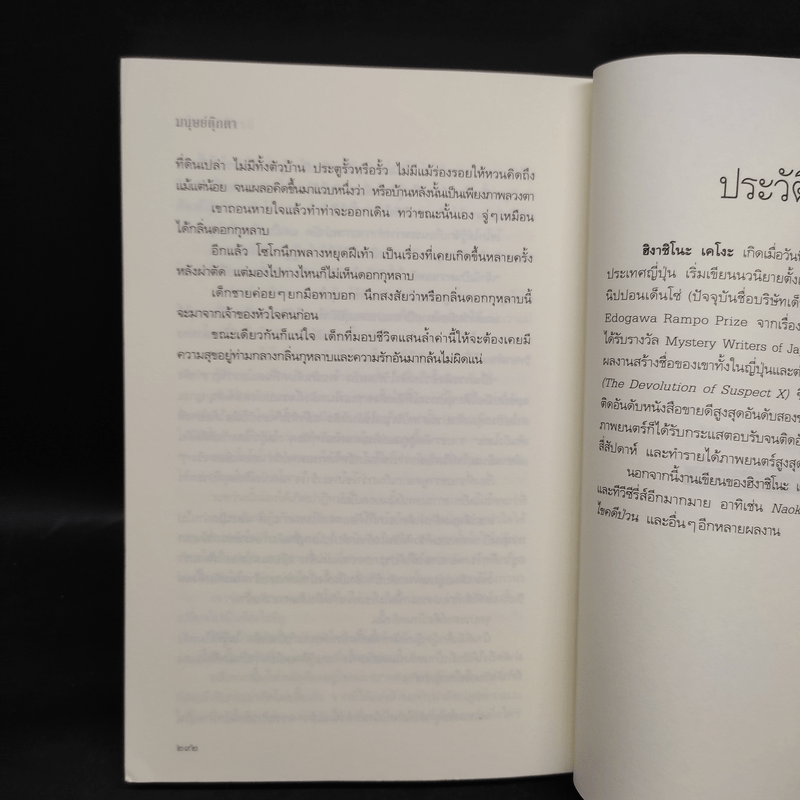 มนุษย์ตุ๊กตา
ที่ดินเปล่า ไม่มีทั้งตัวบ้าน ประตูรั้วหรือรั้ว ไม่มีแม้ร่องรอยให้หวนคิดถึง
แม้แต่น้อย จนเผลอคิดขึ้นมาแวบหนึ่งว่า หรือบ้านหลังนั้นเป็นเพียงภาพลวงตา
เขาถอนหายใจแล้วทำท่าจะออกเดิน ทว่าขณะนั้นเอง จู่ๆ เหมือน
ได้กลิ่นดอกกุหลาบ
อีกแล้ว โซโกนึกพลางหยุดฝีเท้า เป็นเรื่องที่เคยเกิดขึ้นหลายครั้ง
หลังผ่าตัด แต่มองไปทางไหนก็ไม่เห็นดอกกุหลาบ
เด็กชายค่อยๆ ยกมือทาบอก นึกสงสัยว่าหรือกลิ่นดอกกุหลาบนี้
จะมาจากเจ้าของหัวใจคนก่อน
ขณะเดียวกันก็แน่ใจ เด็กที่มอบชีวิตแสนล้ำค่านี้ให้จะต้องเคยมี
ความสุขอยู่ท่ามกลางกลิ่นกุหลาบและความรักอันมากล้นไม่ผิดแน่
๒๙๒
ประวัติ
ฮิงาชิโนะ เคโงะ เกิดเมื่อวันที่
ประเทศญี่ปุ่น เริ่มเขียนนวนิยายตั้งแ
นิปปอนเด็นโซ่ (ปัจจุบันชื่อบริษัทเด็
Edogawa Rampo Prize จากเรื่อง
ได้รับรางวัล Mystery Writers of Ja
ผลงานสร้างชื่อของเขาทั้งในญี่ปุ่นและต่
(The Devolution of Suspect X) ซึ
ติดอันดับหนังสือขายดีสูงสุดอันดับสองข
ภาพยนตร์ก็ได้รับกระแสตอบรับจนติดอั
สี่สัปดาห์ และทำรายได้ภาพยนตร์สูงสุด
นอกจากนี้งานเขียนของฮิงาชิโนะ เ
และทีวีซีรี่ส์อีกมากมาย อาทิเช่น Naok
ไขคดีป่วน และอื่นๆ อีกหลายผลงาน